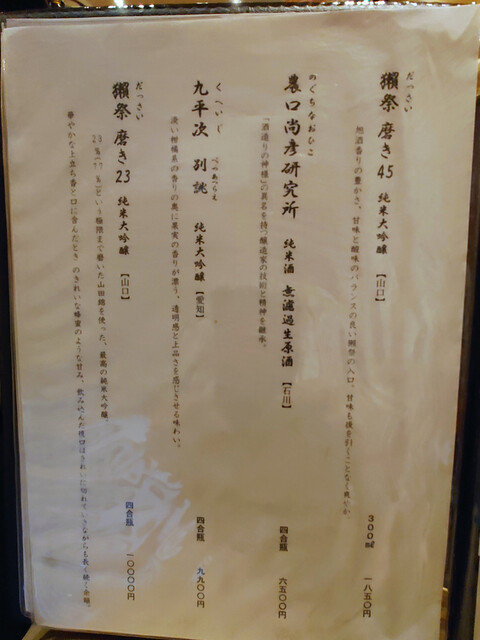 だっさい
獺祭 磨き45 純米大吟醸【山口】
香りの豊かさ、甘味と酸味のバランスの良い獺祭の入口。甘味も後を引くことなく爽やか
300㎖ 一八五〇円
のぐちなおひこ
農口尚彦研究所 純米酒 無濾過生原酒【石川】
「酒造りの神様」の異名を持つ醸造家の技術と精神を継承。
四合瓶 六五〇〇円
くへいじ べつあつらえ
九平次 別誂 純米大吟醸【愛知】
淡い柑橘系の香りの奥に果実の香りが漂う。透明感と上品さを感じさせる味わい。
四合瓶 九九〇〇円
だっさい
獺祭 磨き23 純米大吟醸【山口】
23％という極限まで磨いた山田錦を使った、最高の純米大吟醸。
華やかな上立ち香と口に含んだときのきれいな蜂蜜のような甘み、飲み込んだ後口はきれいに切れていきながらも長く続く余韻。
四合瓶 一〇〇〇〇円